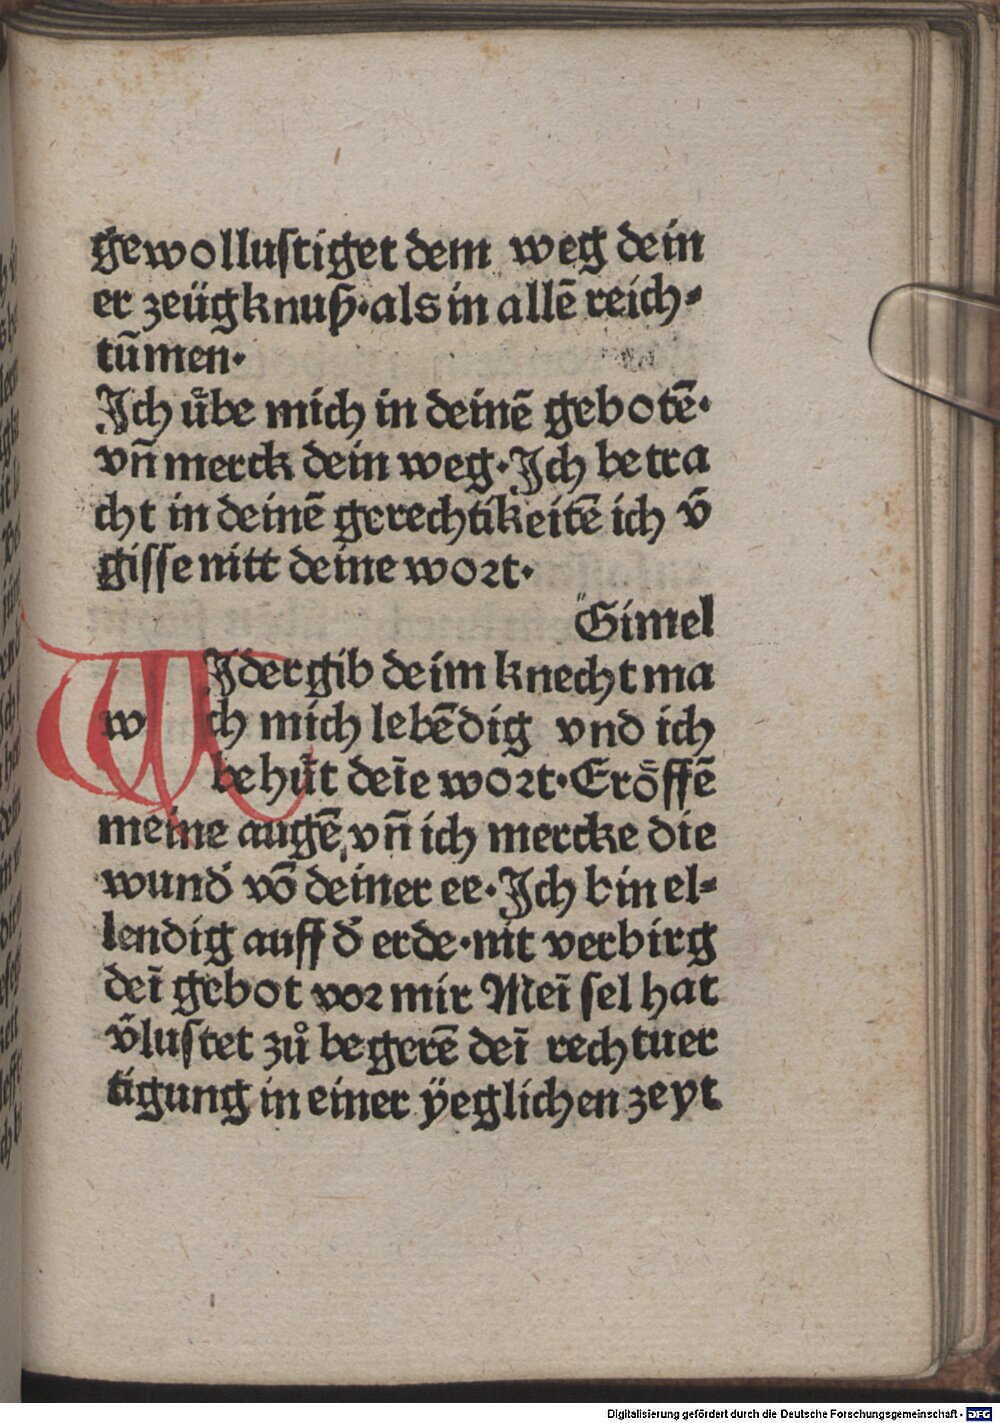 gewollustiget dem weg dein
er zeügknuß·als in allē reich⸗
tūmen·
Jch uͤbe mich in deinē gebotē·
vn̄ merck dein weg·Jch betra
cht in deinē gerechtikeitē ich v̄
gisse nitt deine wort·
Gimel
WJdergib deim knecht ma
w ch mich lebēdig vnd ich
behuͤt deīe wort·Eroͤffē
meine augē, vn̄ ich mercke die
wund̓ vō deiner ee·Jch bin el⸗
lendig auff d̓ erde·nit verbirg
deī gebot vor mir Meī sel hat
v̓lustet zuͦ begerē deī rechtuer
tigung in einer ÿeglichen zeyt
Digitalisierung gefördert durch die Deutsche Forschungsgemeinschaft - DFG